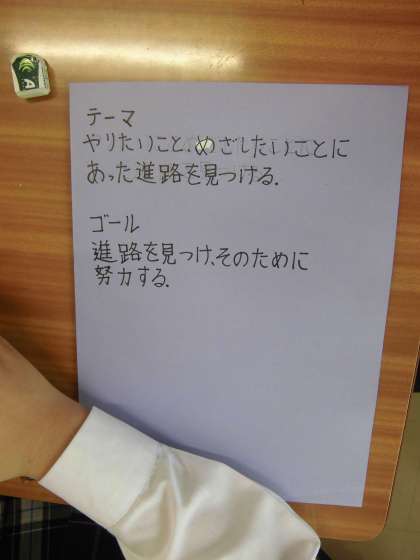 テーマ
やりたいこと、めざしたいことに
あった進路を見つける.
ゴール
進路を見つけ、そのために
努力する.